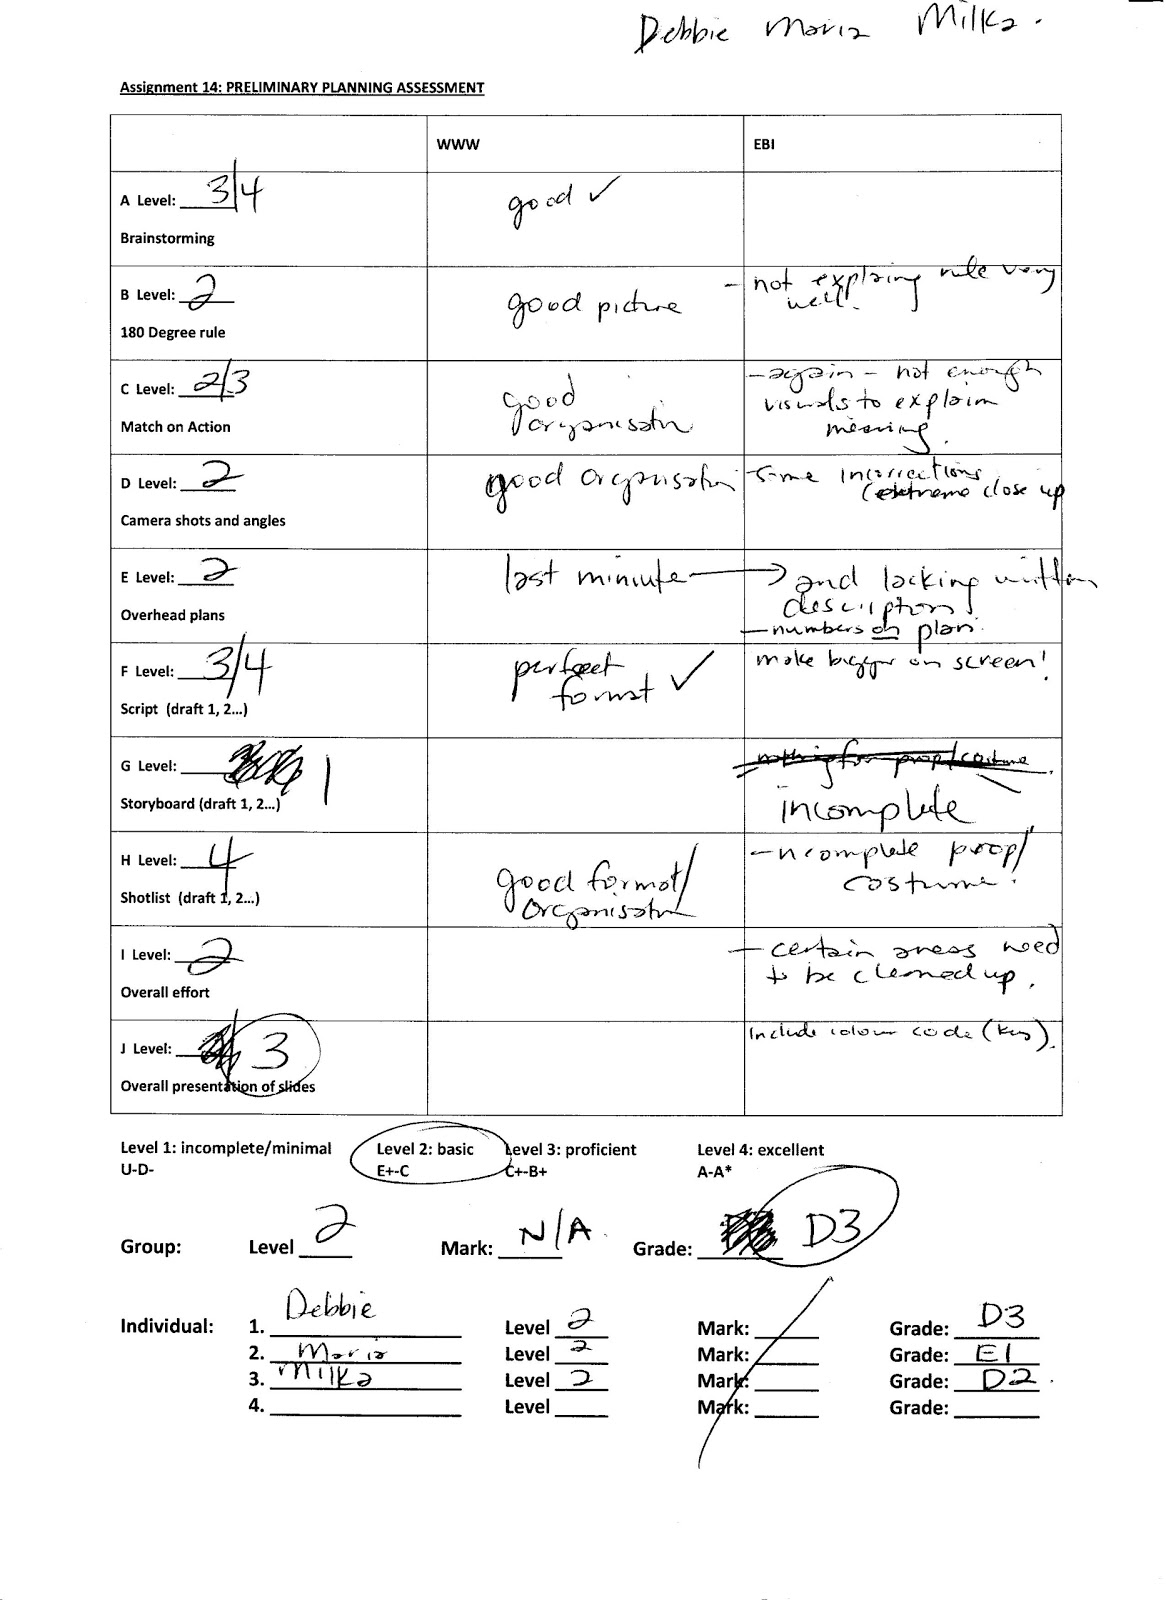 Debbie Maria Milka.
Assignment 14: PRELIMINARY PLANNING ASSESSMENT
WWW EBI
A Level: 3/4 good ✓
Brainstorming
B Level: 2 good picture - not explaing rule very
well.
180 Degree rule
C Level: 2/3 good - again - not enough
organisation visuals to explaim
meaning.
Match on Action
D Level: 2 good organisation some incorrections
(extreme close up
Camera shots and angles
E Level: 2 last miniute → and lacking written
description!
Overhead plans - numbers on plan.
F Level: 3/4 perfect make bigger on screen!
format ✓
Script (draft 1, 2...)
nothing for prop/costume.
G Level: 1
Storyboard (draft 1, 2...) incomplete
H Level: 4 -ncomplete prop/
good format/ costume!
Shotlist (draft 1, 2...) organisation
I Level: 2 - certain areas need
to be cleaned up.
Overall effort
Include colour code (key).
J Level: 3
Overall presentation of slides
Level 1: incomplete/minimal Level 2: basic Level 3: proficient Level 4: excellent
U-D- E+-C C+-B+ A-A*
Group: Level 2 Mark: N/A. Grade: D3
Individual: 1. Debbie Level 2 Mark: Grade: D3
2. Maria Level 2 Mark: Grade: E1
3. Milka Level 2 Mark: Grade: D2.
4. Level Mark: Grade: